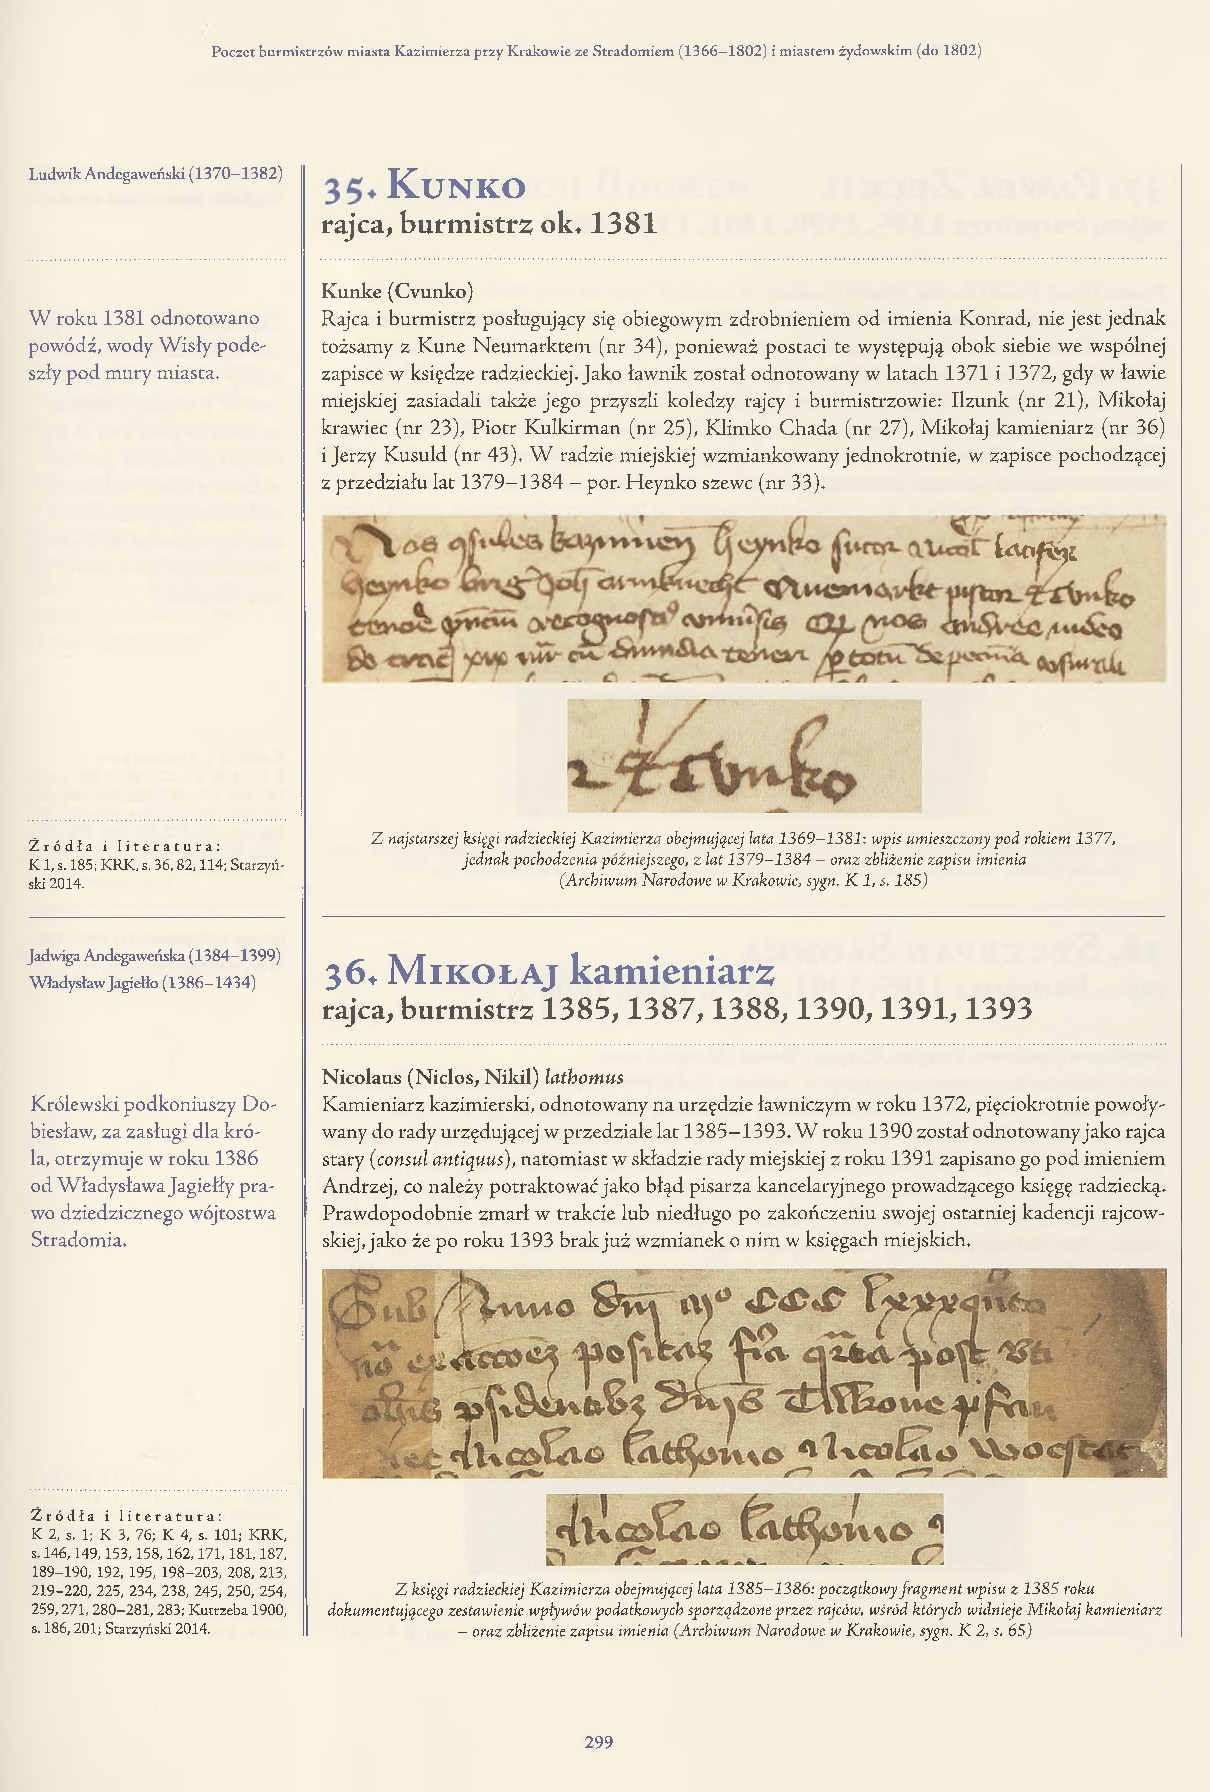 Poczet burmistrzów miasta Kazimierza przy Krakowie ze Stradomiem (1366–1802) i miastem żydowskim (do 1802)
Ludwik Andegaweński (1370–1382)
W roku 1381 odnotowano
powódź, wody Wisły pode-
szły pod mury miasta.
Źródła i literatura:
K 1, s. 185; KRK, s. 36, 82, 114; Starzyń-
ski 2014.
35. Kunko
rajca, burmistrz ok. 1381
Kunke (Cvunko)
Rajca i burmistrz posługujący się obiegowym zdrobnieniem od imienia Konrad, nie jest jednak
tożsamy z Kune Neumarktem (nr 34), ponieważ postaci te występują obok siebie we wspólnej
zapisce w księdze radzieckiej. Jako ławnik został odnotowany w latach 1371 i 1372, gdy w ławie
miejskiej zasiadali także jego przyszli koledzy rajcy i burmistrzowie: Ilzunk (nr 21), Mikołaj
krawiec (nr 23), Piotr Kulkirman (nr 25), Klimko Chada (nr 27), Mikołaj kamieniarz (nr 36)
i Jerzy Kusuld (nr 43). W radzie miejskiej wzmiankowany jednokrotnie, w zapisce pochodzącej
z przedziału lat 1379–1384 – por. Heynko szewc (nr 33).
Z najstarszej księgi radzieckiej Kazimierza obejmującej lata 1369–1381: wpis umieszczony pod rokiem 1377,
jednak pochodzenia późniejszego, z lat 1379–1384 – oraz zbliżenie zapisu imienia
(Archiwum Narodowe w Krakowie, sygn. K 1, s. 185)
Jadwiga Andegaweńska (1384–1399)
Władysław Jagiełło (1386–1434)
Królewski podkoniuszy Do-
biesław, za zasługi dla kró-
la, otrzymuje w roku 1386
od Władysława Jagiełły pra-
wo dziedzicznego wójtostwa
Stradomia.
Źródła i literatura:
K 2, s. 1; K 3, 76; K 4, s. 101; KRK,
s. 146, 149, 153, 158, 162, 171, 181, 187,
189–190, 192, 195, 198–203, 208, 213,
219–220, 225, 234, 238, 245, 250, 254,
259, 271, 280–281, 283; Kutrzeba 1900,
s. 186, 201; Starzyński 2014.
36. Mikołaj kamieniarz
rajca, burmistrz 1385, 1387, 1388, 1390, 1391, 1393
Nicolaus (Niclos, Nikil) lathomus
Kamieniarz kazimierski, odnotowany na urzędzie ławniczym w roku 1372, pięciokrotnie powoły-
wany do rady urzędującej w przedziale lat 1385–1393. W roku 1390 został odnotowany jako rajca
stary (consul antiquus), natomiast w składzie rady miejskiej z roku 1391 zapisano go pod imieniem
Andrzej, co należy potraktować jako błąd pisarza kancelaryjnego prowadzącego księgę radziecką.
Prawdopodobnie zmarł w trakcie lub niedługo po zakończeniu swojej ostatniej kadencji rajcow-
skiej, jako że po roku 1393 brak już wzmianek o nim w księgach miejskich.
Nicolao lathomo
Z księgi radzieckiej Kazimierza obejmującej lata 1385–1386: początkowy fragment wpisu z 1385 roku
dokumentującego zestawienie wpływów podatkowych sporządzone przez rajców, wśród których widnieje Mikołaj kamieniarz
– oraz zbliżenie zapisu imienia (Archiwum Narodowe w Krakowie, sygn. K 2, s. 65)
299